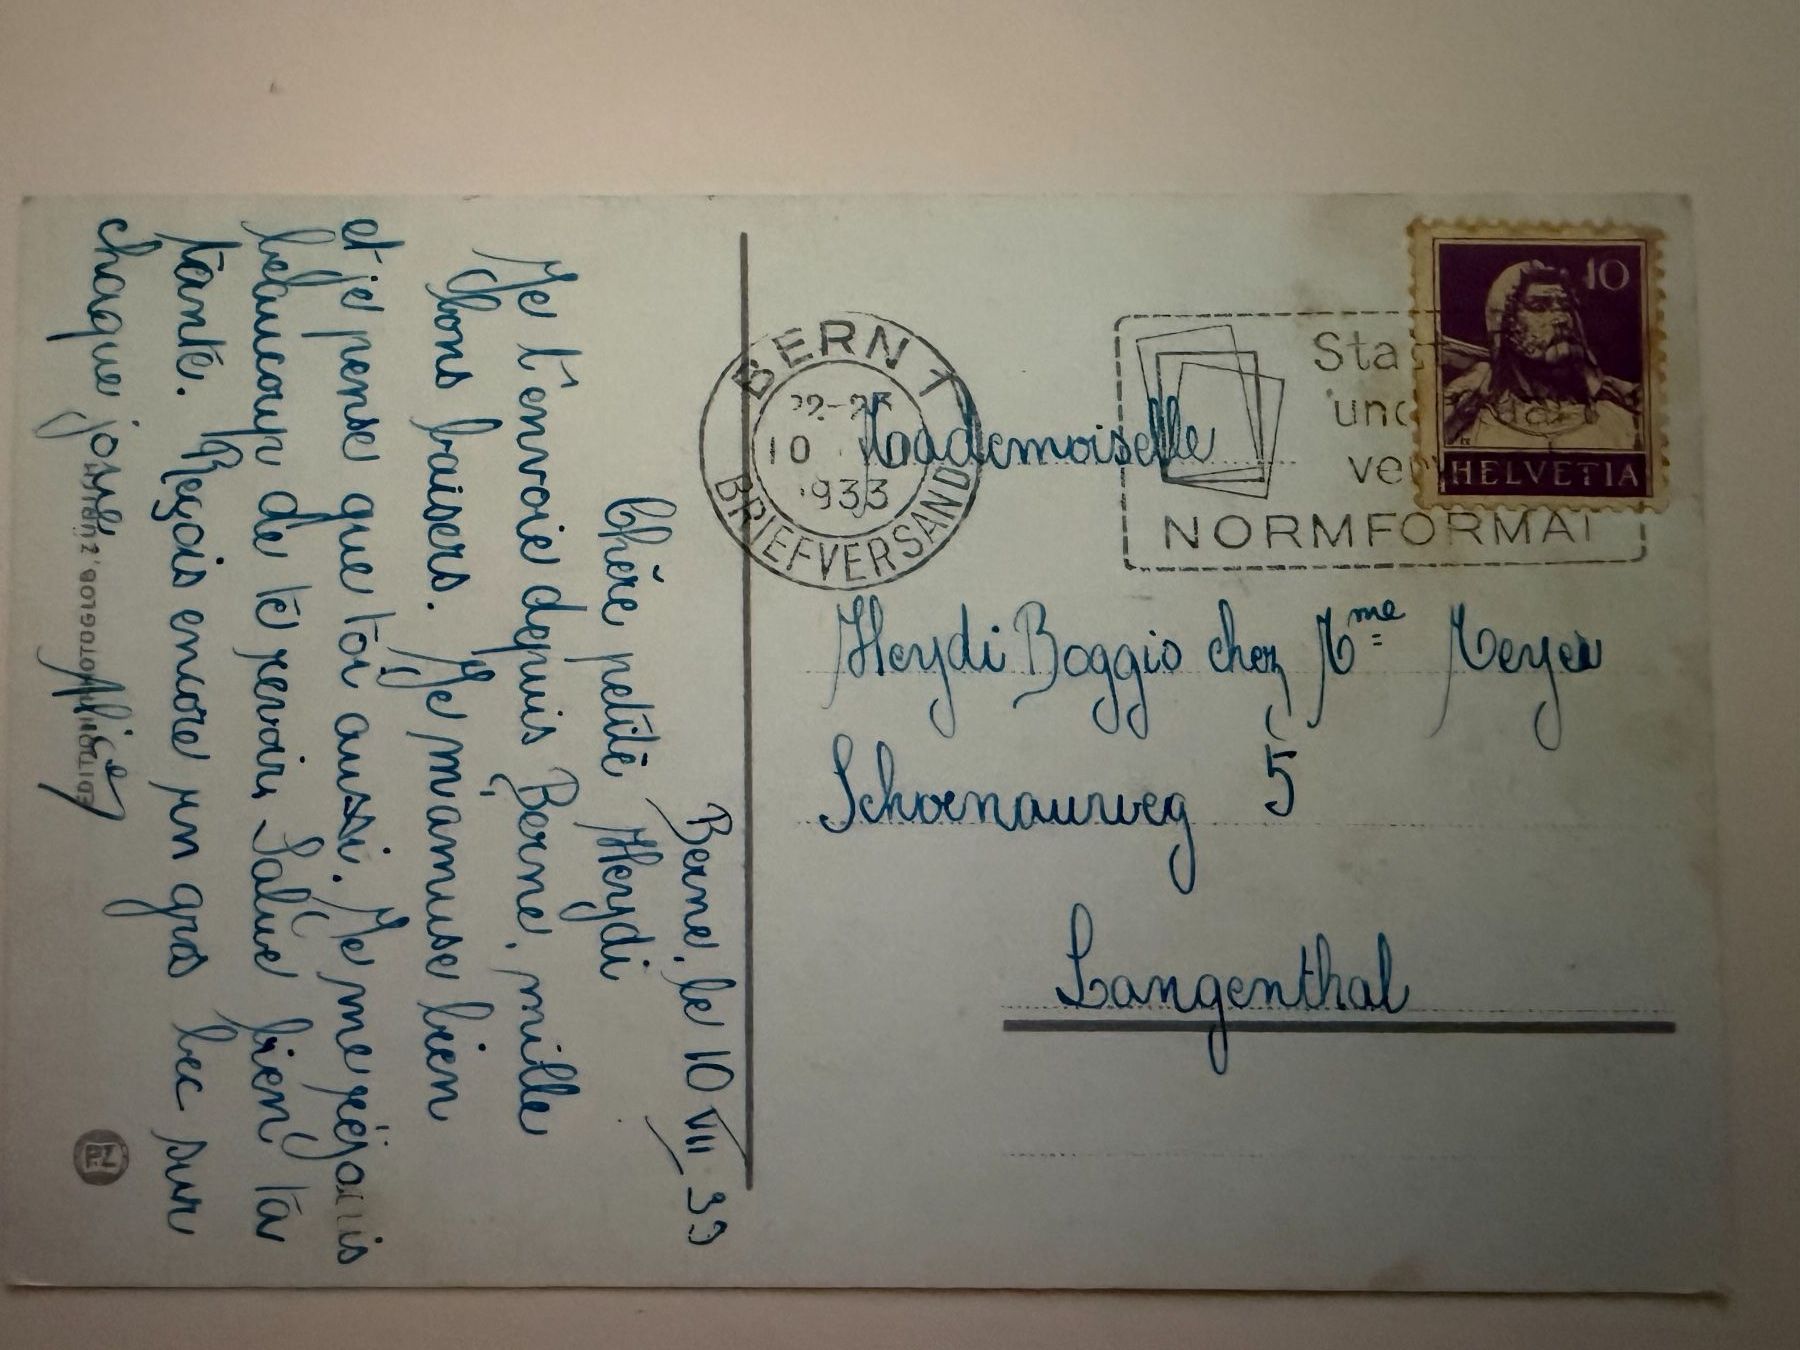 Berne, le 10 VII 33
Chère petite Heydi
Je t'envoie depuis Berne, mille
bons baisers. Je m'amuse bien
et je pense que toi aussi. Je me réjouis
beaucoup de te revoir, Salue bien ta
tante. Reçois encore un gros bec sur
chaque joue.
BERN 1
22-2
10
1933
BRIEFVERSAND
Sta
und
ver
NORMFORMAT
10
HELVETIA
Maademoiselle
Heydi Boggio chez Mme Meyer
Schoenauweg 5
Langenthal
EDITION PHOTOGLOB, ZURICH
PZ